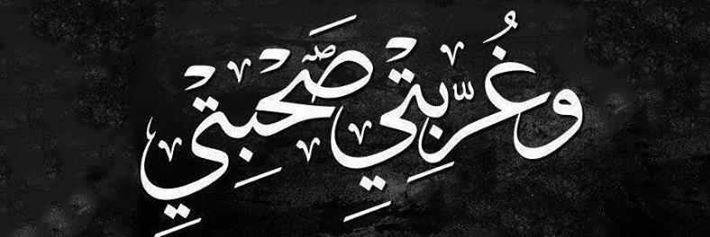 وَغُرّبَتِي صَحْبَتِي